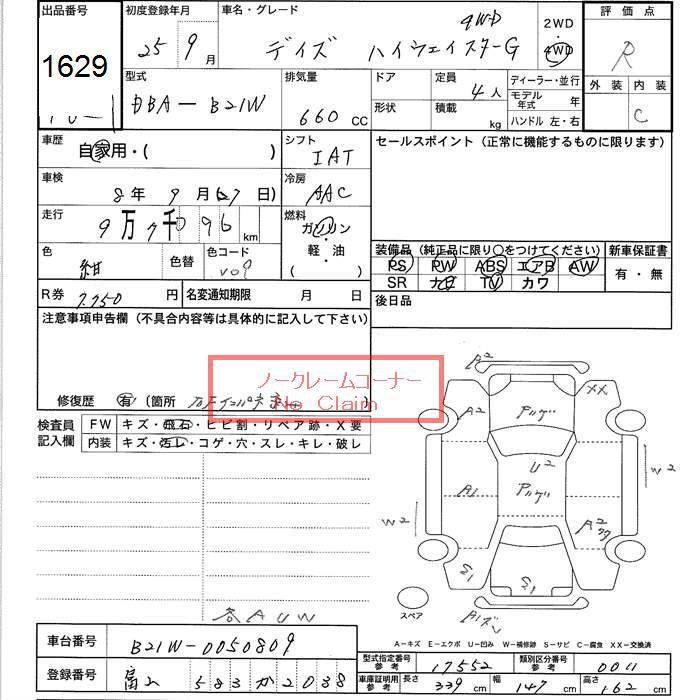 出品番号 初度登録年月 車名・グレード 4WD 2WD 評価点
1629 25 9 月 デイズ ハイウェイスターG 4WD R
型式 排気量 ドア 定員 4 人 ディーラー・並行 外装 内装
DBA-B21W 660 CC 形状 積載 kg モデル年式 年 ハンドル 左・右 C
車歴 自家用・( ) シフト IAT セールスポイント (正常に機能するものに限ります)
車検 8 年 9 月 (27 日) 冷房 AAC
走行 9 万 7 千 096 km 燃料 ガソリン・軽・油 ( )
色 紺 色替 色コード 装備品 (純正品に限り○をつけてください) 新車保証書
PS PW ABS エアB AW 有・無
SR ナビ TV カワ
R券 7750 円 名変通知期限 月 日 後日品
注意事項申告欄 (不具合内容等は具体的に記入して下さい)
ノークレームコーナー
No Claim
修復歴 有 (箇所 )
検査員記入欄 FW キズ・飛石・ヒビ割・リペア跡・X要
内装 キズ・汚レ・コゲ・穴・スレ・キレ・破レ
A2
XX
A2
アゲ
U2
W2
A1
アゲ
W2
A2
S1
S1
スペア
A-キズ E-エクボ U-凹み W-補修跡 S-サビ C-腐食 XX-交換済
車台番号 B21W-0050809 型式指定番号 参考 17552 類別区分番号 参考 0011
登録番号 富山 583 か 2038 車庫証明用 参考 長さ 339 cm 幅 147 cm 高さ 162 cm